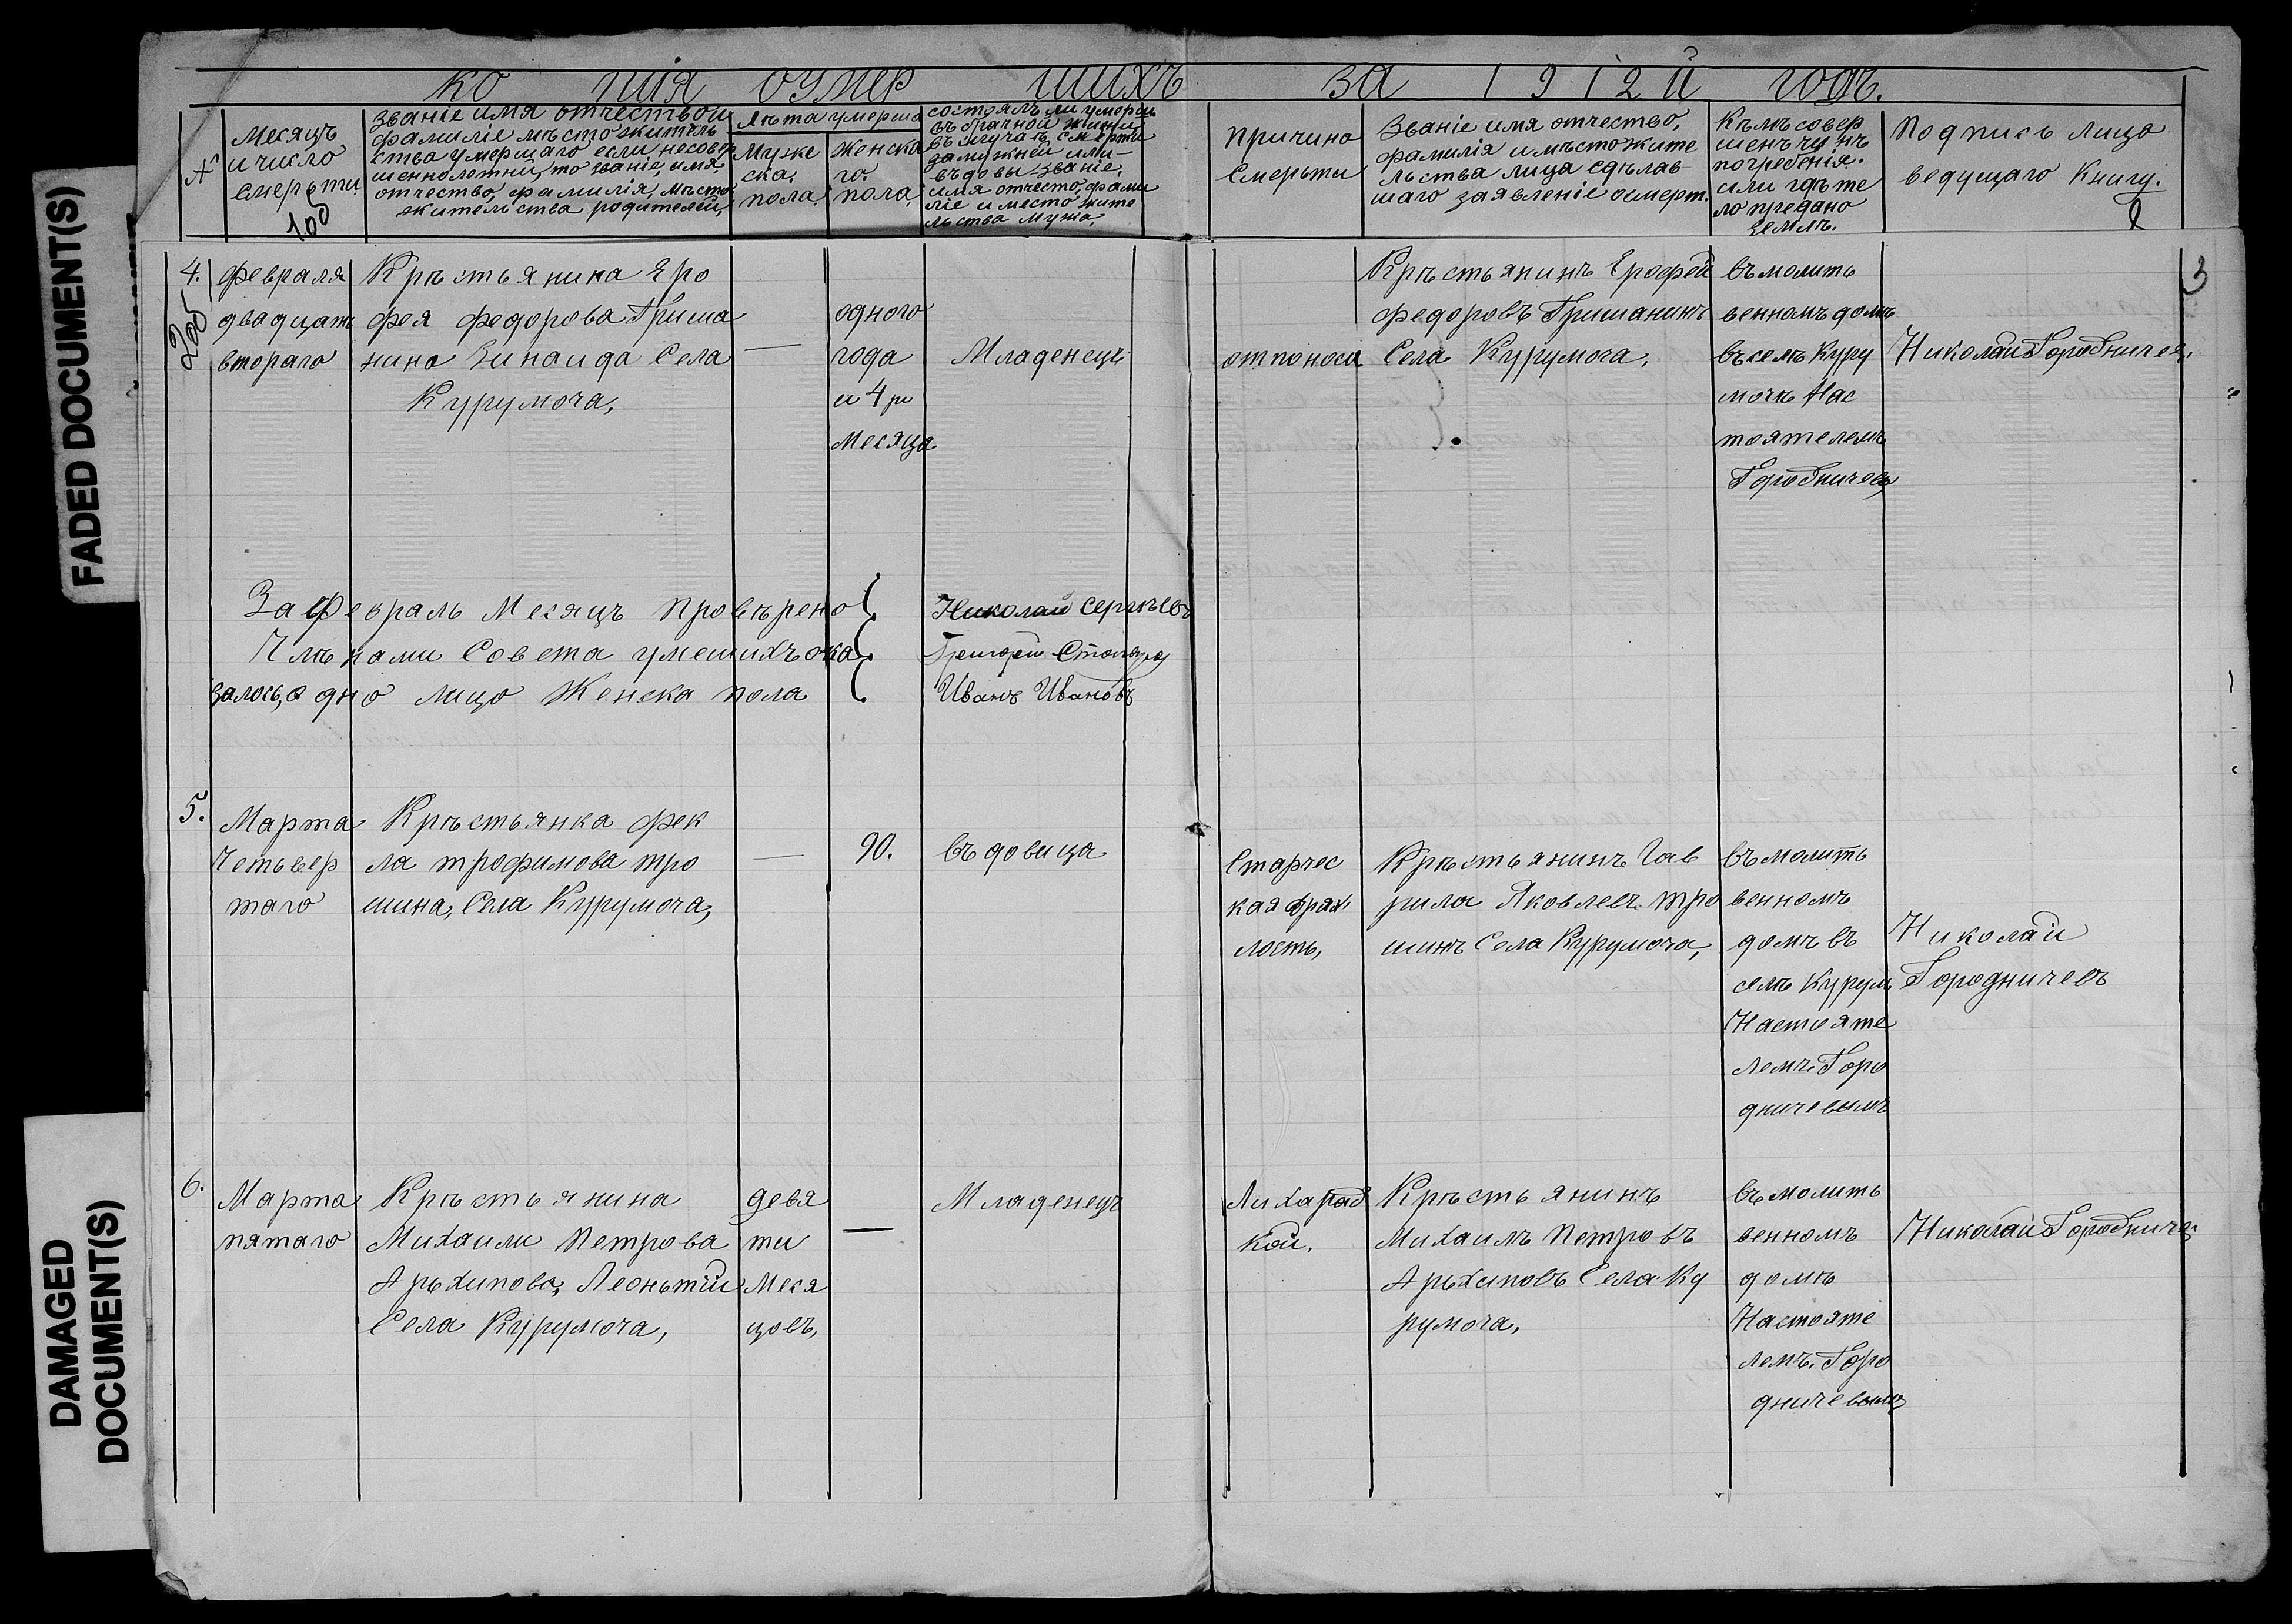 копія оумер шихъ за 1912 й годъ.
№
Месяцъ
и число
Смерьти
100
Званіе имя отчество и
фамиліе место житель
ства умершаго если несовер
шеннолетній, то званіе, имя
отчество, фамилія, место
жительства родителей,
Лѣта умерша
Муже
ска.
пола.
Женска
го.
пола,
состоялъ ли умершъ
въ брачной жизни
въ случаѣ смерти
замужней или
въдовы званіе,
имя отчесто, фами
ліе и место жите
льства мужа,
причина
Смерьти
Званіе имя отчество,
фамилія и мѣстожите
льства лица сдѣлав
шаго заявленіе осмерт.
Къмъ совер
шенъ чинъ
погребенія.
или где те
ло предано
землѣ.
Подпись лица
ведущаго Книгу.
3
4.
200
февраля
двадцать
втораго
Крѣстьянина Яро
фея федорова Гриша
нина Зинаида Села
Курумоча,
—
одного
года
и 4 ре
Месяца
Младенецъ
от поноса
Крѣстьянинъ Ерофей
федоровъ Гришанинъ
Села Курумоча,
въ молить
венномъ домѣ
въ селѣ Куру
мочѣ Нас
тоятелемъ
Городничевъ
Николай Городничев.
За Февраль Месяцъ провѣрено
Члѣнами Совета умешихъ ока
залось, одно лицо Женска пола
Николай Сергѣевъ
Григорей
Иванъ Ивановъ
5.
Марта
Четьвер
таго
Крѣстьянка Фек
ла трофимова тро
шина, Села Курумоча,
—
90.
въдовица
Старчес
кая драх
лость,
Крѣстьянинъ Гав
рила Яковлевъ тро
шинъ Села Курумоча,
въ молить
венномъ
домѣ въ
селѣ Курум
Настояте
лемъ Горо
дничевымъ
Николай
Городничевъ
6.
Марта
пятаго
Крѣстьянина
Михаили Петрова
Арьхипова, Леоньтій
Села Курумоча,
девя
ти
Меся
цовъ,
—
Младенецъ
Лихарад
кой.
Крѣстьянинъ
Михаилъ Петровъ
Арьхиповъ Села Ку
румоча,
въ молить
венномъ
домѣ
Настояте
лемъ Горо
дничевымъ
Николай Городниче
FADED DOCUMENT(S)
DAMAGED
DOCUMENT(S)